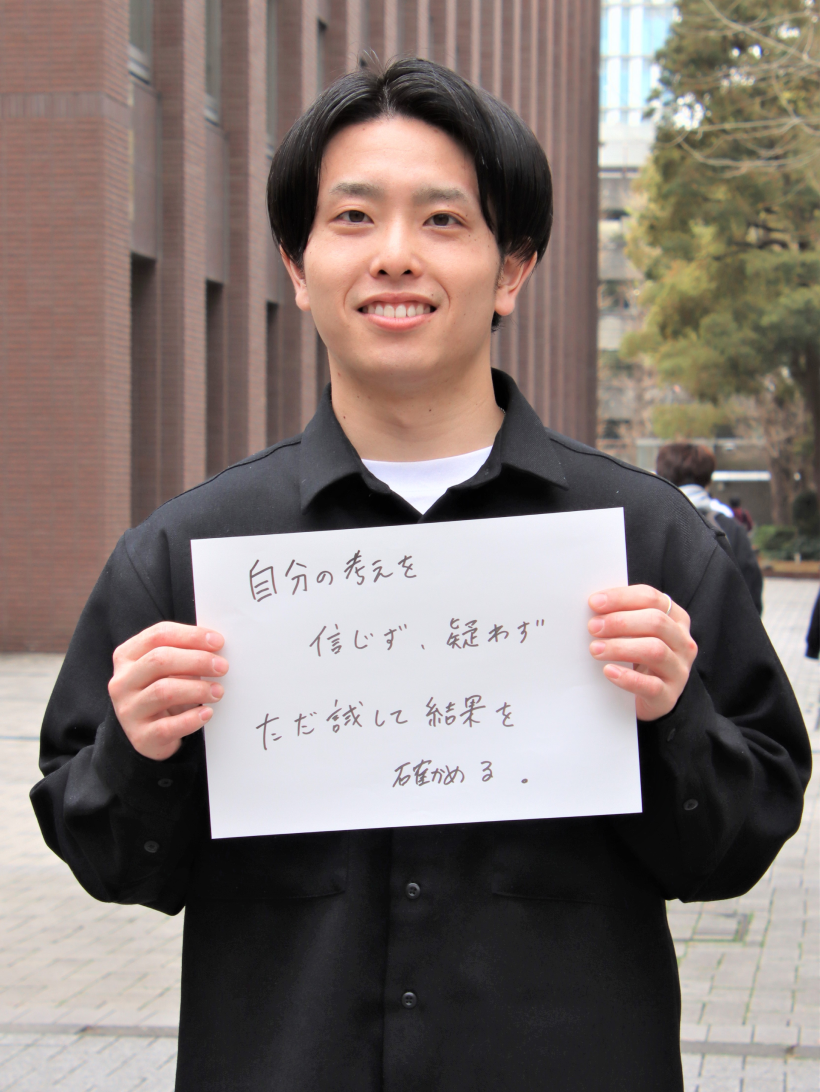 自分の考えを
信じず、疑わず
ただ試して結果を
確かめる。